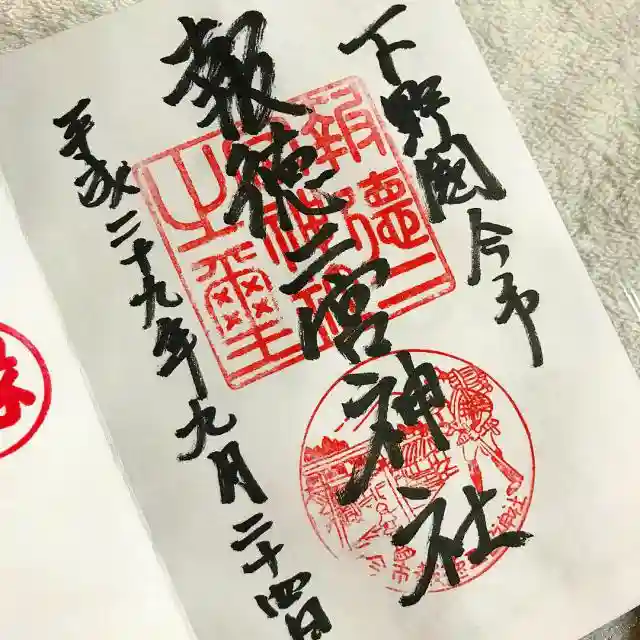 下野國今市
報徳二宮神社
平成二十九年九月二十四日
報徳二
宮神社
之璽